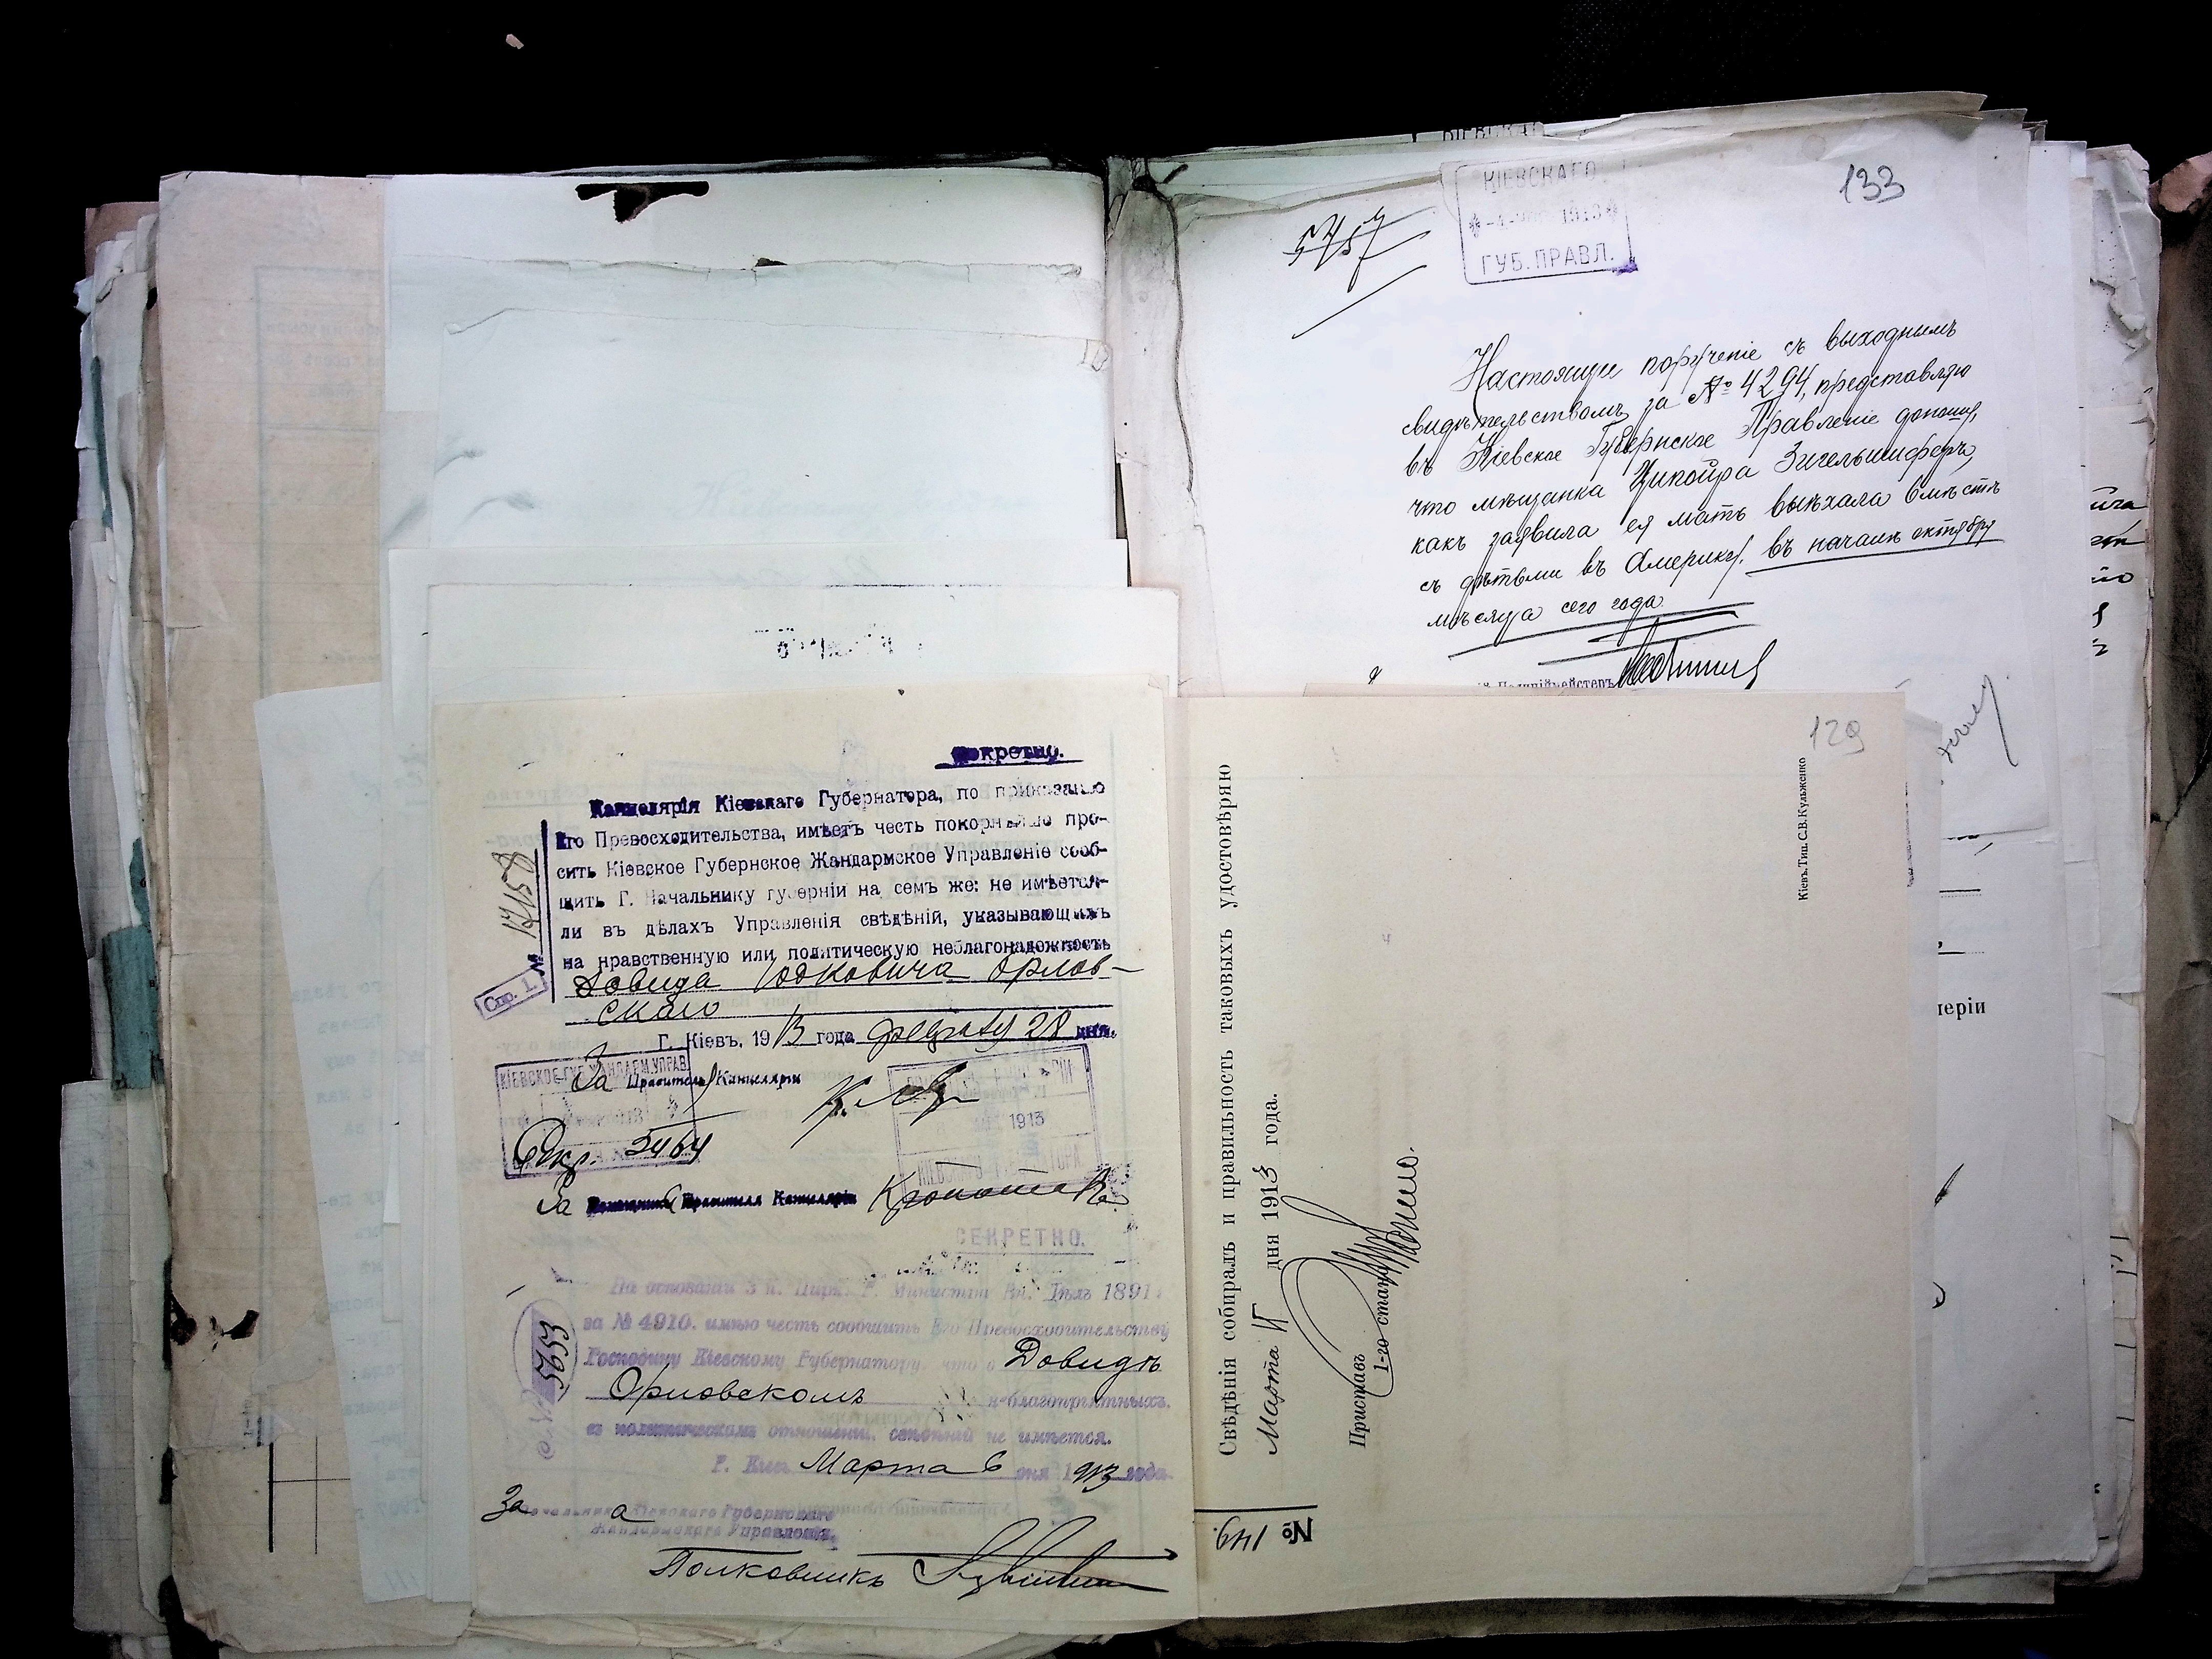 133
5757
КІЕВСКАГО
1913
ГУБ. ПРАВЛ.
Настоящее порученіе съ выходнымъ
свидѣтельствомъ за № 4294, представляю
въ Кіевское Губернское Правленіе донощу,
что мѣщанка Ципойра Зигельшиферъ,
какъ заявила ея мать выѣхала вмѣстѣ
съ дѣтьми въ Америку, въ началѣ октября
мѣсяца сего года.
Полиціймейстеръ
Секретно.
Канцелярія Кіевскаго Губернатора, по приказанію
Его Превосходительства, имѣетъ честь покорнѣйше про-
сить Кіевское Губернское Жандармское Управленіе сооб-
щить Г. Начальнику губерніи на семъ же: не имѣется-
ли въ дѣлахъ Управленія свѣдѣній, указывающихъ
на нравственную или политическую неблагонадежность
Довида Юдковича Орлов-
скаго
№ 17158
Стр. 1.
Г. Кіевъ, 1913 года 28 дня.
КІЕВСКОЕ ГУБ. ЖАНДАРМ. УПРАВ
За Правитель Канцеляріи
1913
5464
За Помощника Правителя Канцеляріи
СЕКРЕТНО.
На основаніи 3 п. Цирк. Г. Министра Вн. Дѣлъ 1891 г.
за № 4910. имѣю честь сообщить Его Превосходительству
Господину Кіевскому Губернатору, что о Довидѣ
Орловскомъ неблагопріятныхъ
въ политическомъ отношеніи свѣдѣній не имѣется.
№ 5653
Г. Кіевъ Марта 6 дня 1913 года.
За Начальника Кіевскаго Губернскаго
Жандармскаго Управленія,
Полковникъ
129
Кіевъ. Тип. С.В.Кульженко
Свѣдѣнія собиралъ и правильность таковыхъ удостовѣряю
Марта дня 1913 года.
Приставъ 1-го стана
№ 149.